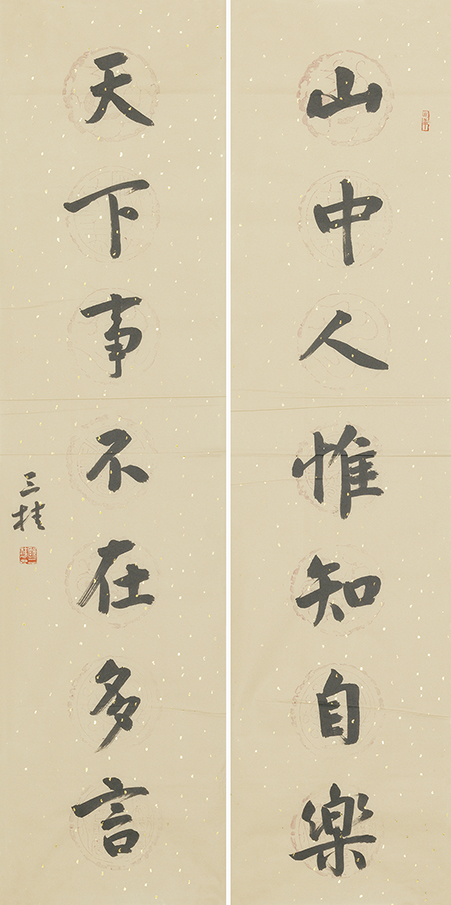 山中人惟知自樂
天下事不在多言
三桂